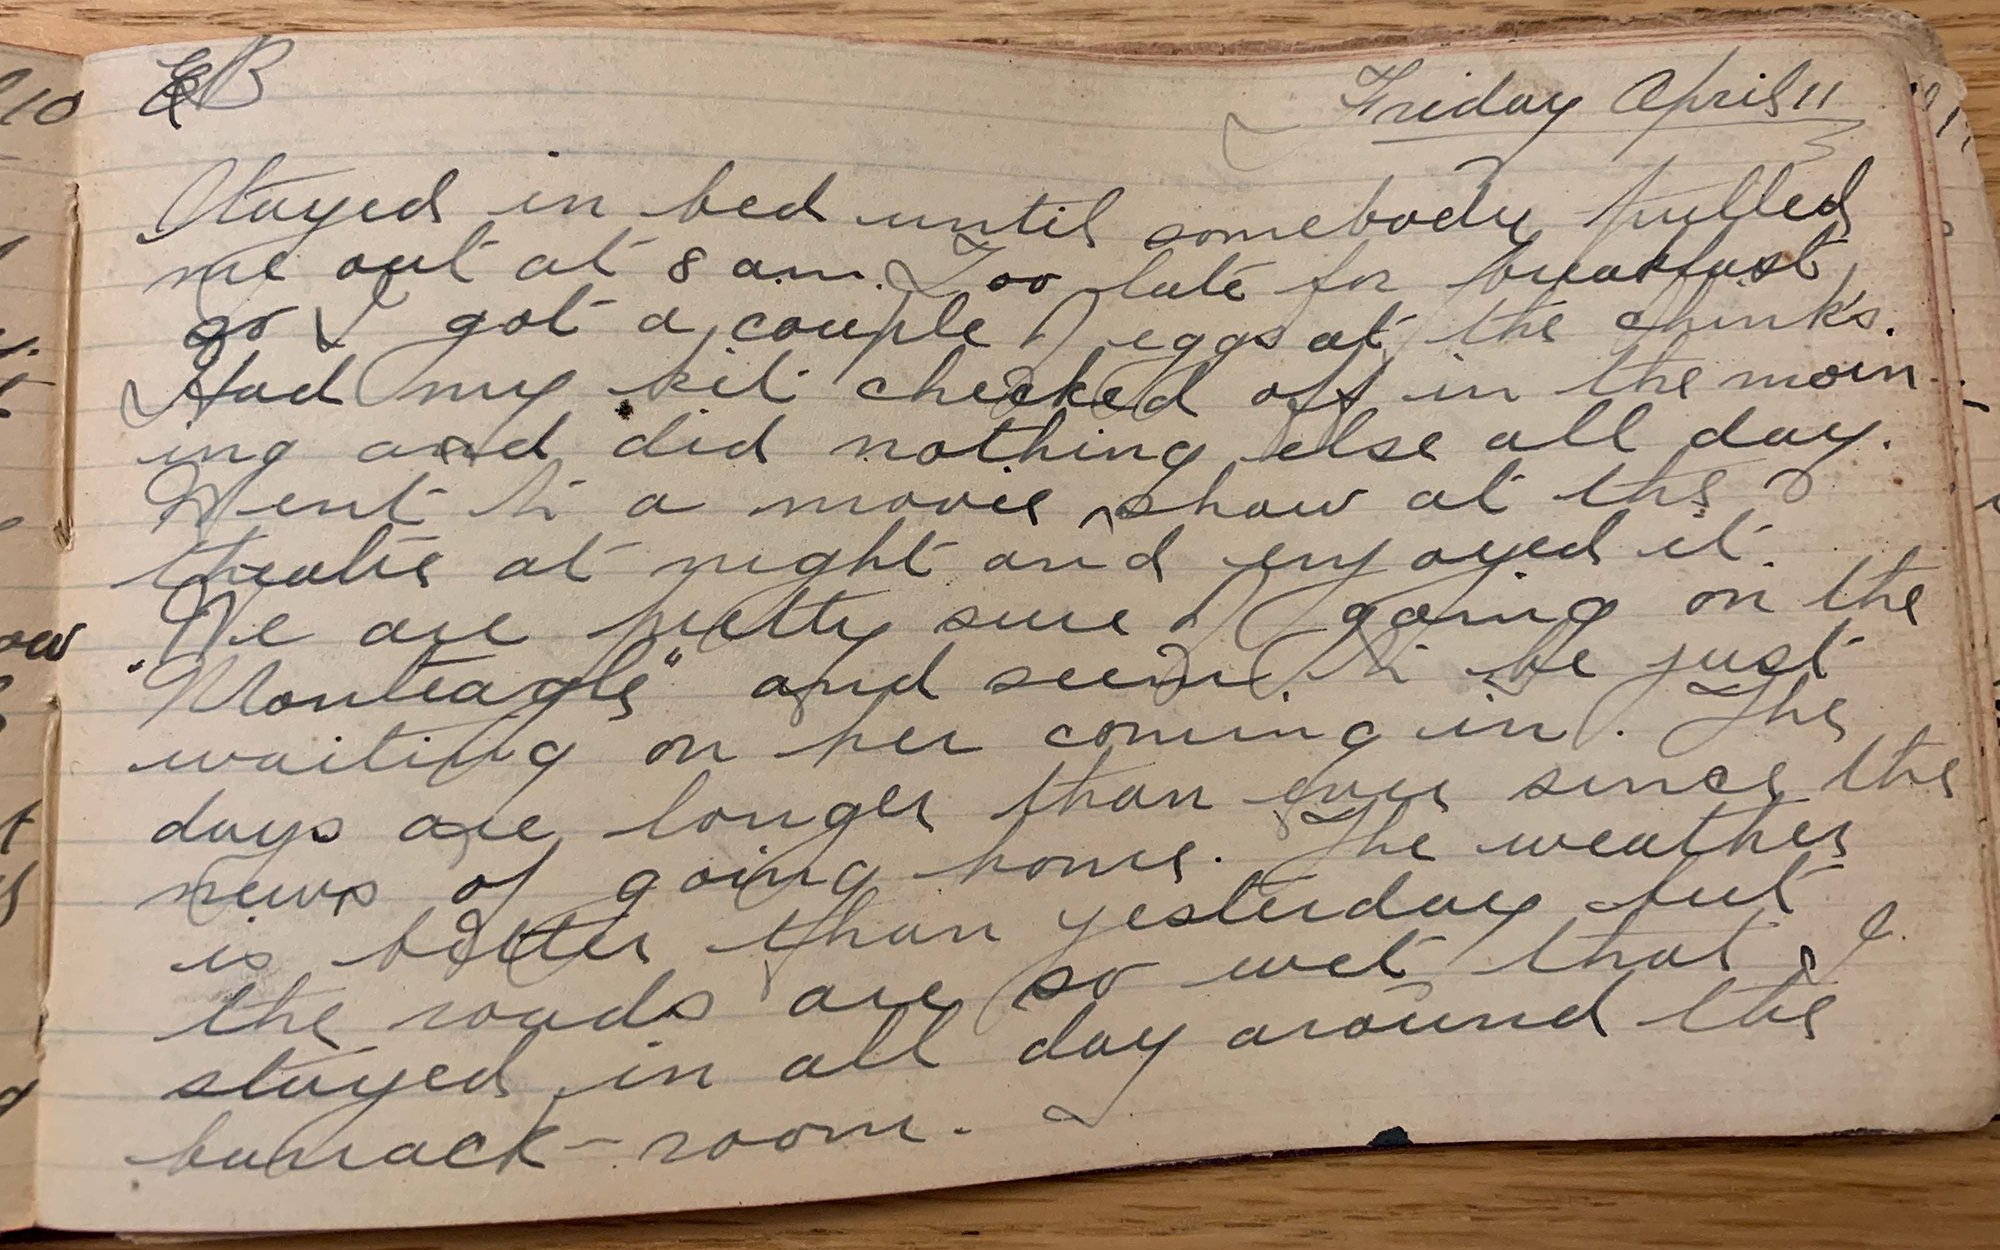 10
EB
Friday April 11
Stayed in bed until somebody pulled
me out at 8 am. Too late for breakfast,
so I got a couple of eggs at the chink's.
Had my kit checked off in the morn-
ing and did nothing else all day.
Went to a movie show at the
theatre at night and enjoyed it.
We are pretty sure of going on the
"Monteagle" and seem to be just
waiting on her coming in. The
days are longer than ever since the
news of going home. The weather
is better than yesterday but
the roads are so wet that I
stayed in all day around the
barrack-room.